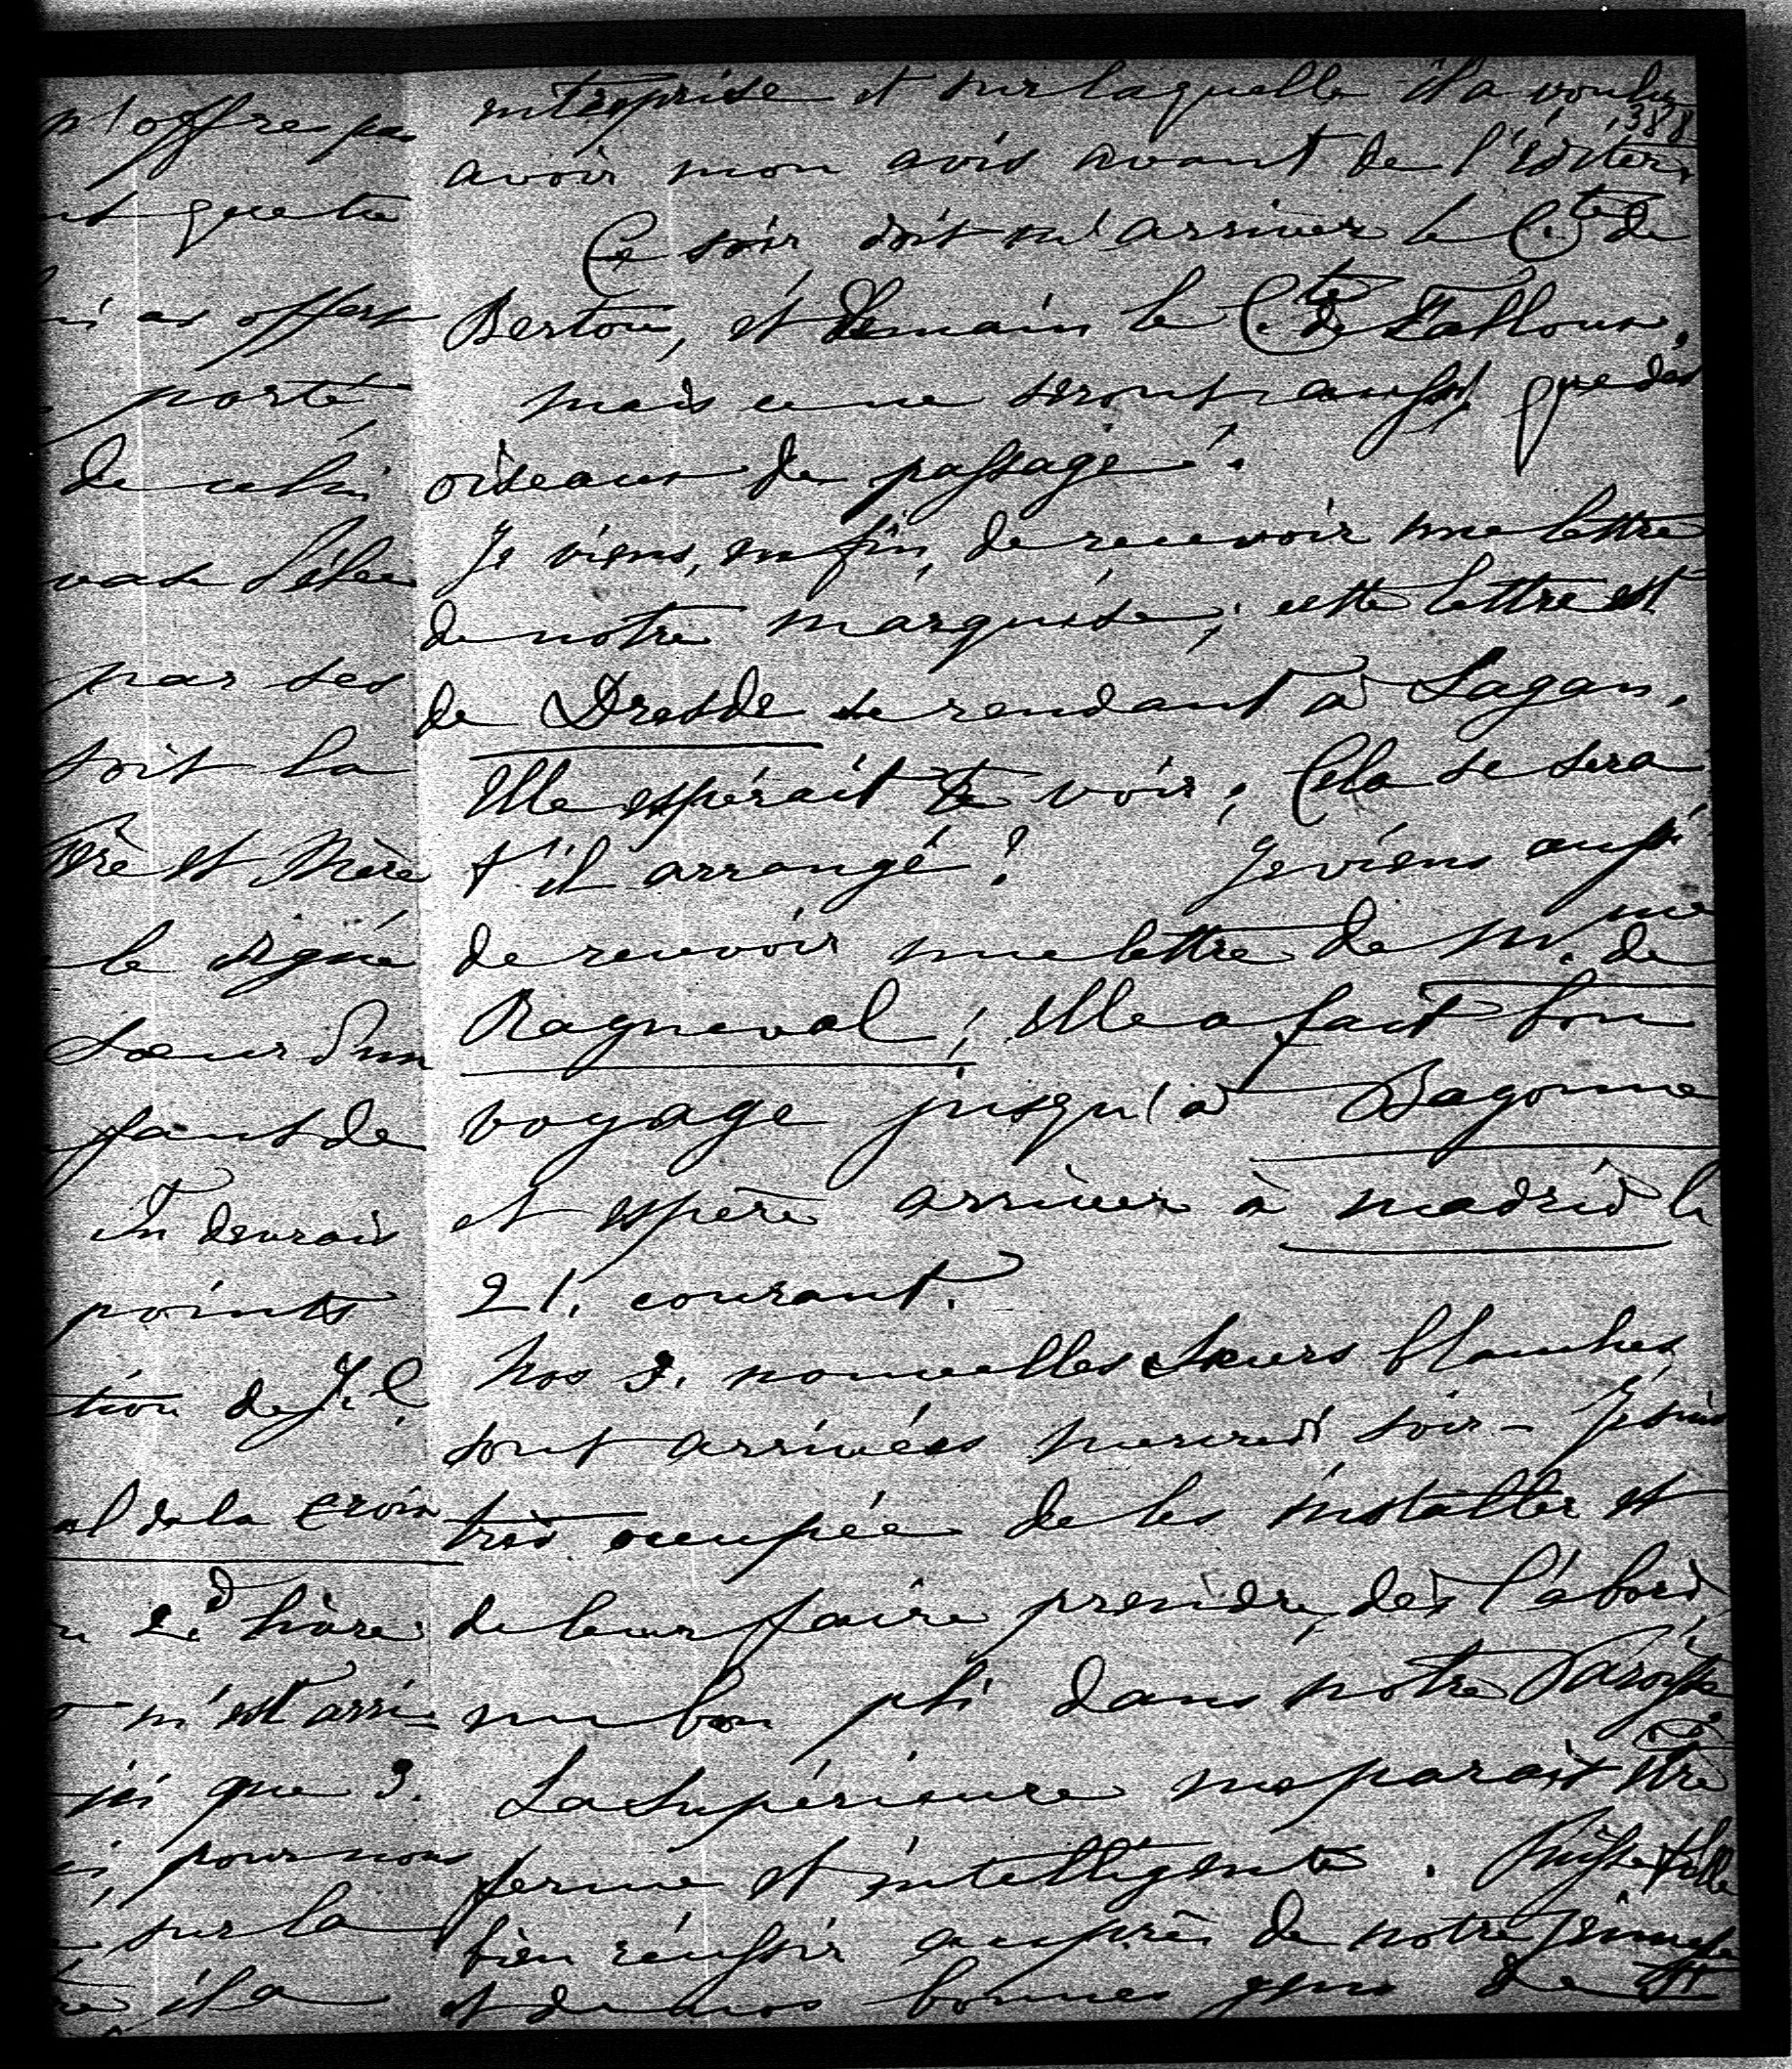 n'offre pas
quatre
as offert
porté
de celui
vase
par ses
soit la
et Mère
le signe
Soeur d'un
fants de
Tu devrais
points
tion de J. C.
al de la Croix
2.d livre
m'est arri=
que 3.
pour nous
sur la
il a
entreprise et sur laquelle il a voulu
388
avoir mon avis avant de l'éditer.
Ce soir doit m'arriver le C.te de
Bertou, et demain le C.te de Falloux,
mais ce ne seront aussi que des
oiseaux de passage.
Je viens, enfin, de recevoir une lettre
de notre marquise; cette lettre est
de Dresde se rendant à Sagan.
Elle espérait te voir; Cela se sera
t'il arrangé? Je viens aussi
de recevoir une lettre de M.me de
Rayneval; elle a fait bon
voyage jusqu'à Bayonne
et espère arriver à Madrid le
21. courant.
Nos 3. nouvelles Soeurs blanches
sont arrivées mercredi soir - Je suis
très occupée de les installer et
de leur faire prendre, dès l'abord,
un bon pli dans notre Paroisse.
La Supérieure me parait être
ferme et intelligente. Puisse t'elle
bien réussir auprès de notre jeunesse
et de nos bonnes gens de St